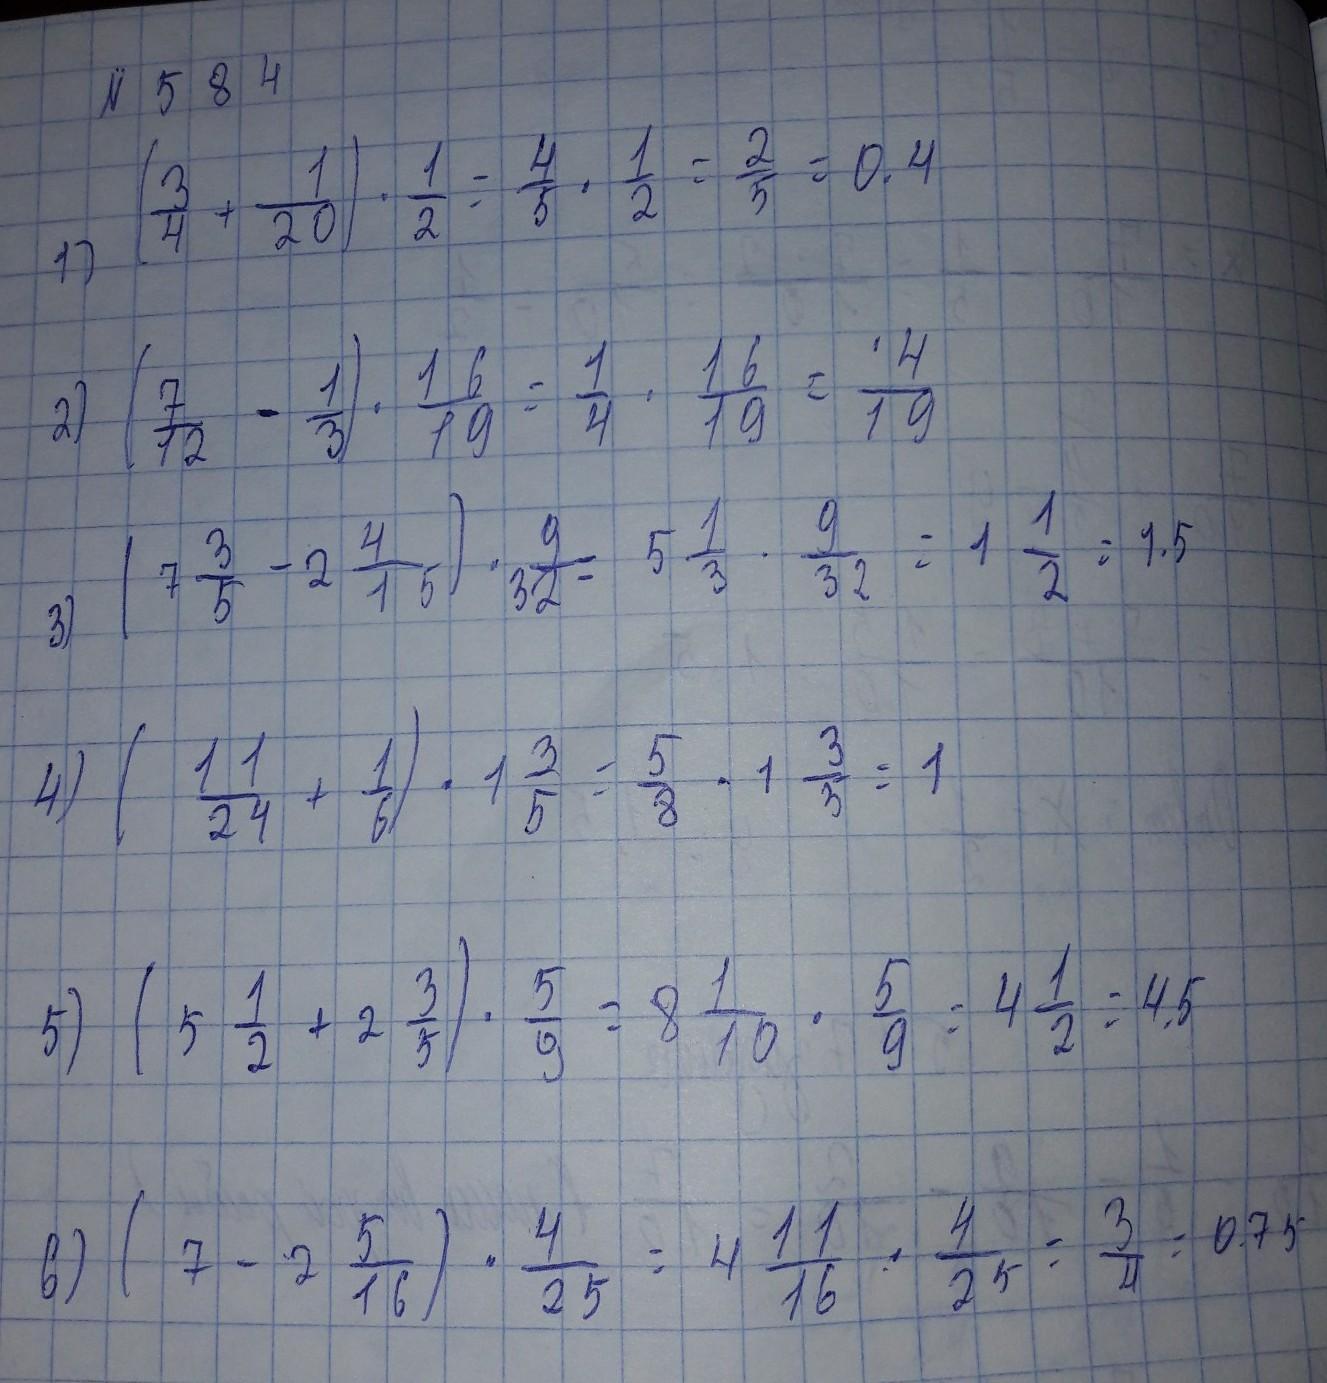 N 584
1) (3/4 + 1/20) · 1/2 = 4/5 · 1/2 = 2/5 = 0.4
2) (7/12 - 1/3) · 16/19 = 1/4 · 16/19 = 4/19
3) (7 3/5 - 2 4/15) · 9/32 = 5 1/3 · 9/32 = 1 1/2 = 1.5
4) (11/24 + 1/6) · 1 3/5 = 5/8 · 1 3/5 = 1
5) (5 1/2 + 2 3/5) · 5/9 = 8 1/10 · 5/9 = 4 1/2 = 4.5
6) (7 - 2 5/16) · 4/25 = 4 11/16 · 4/25 = 3/4 = 0.75